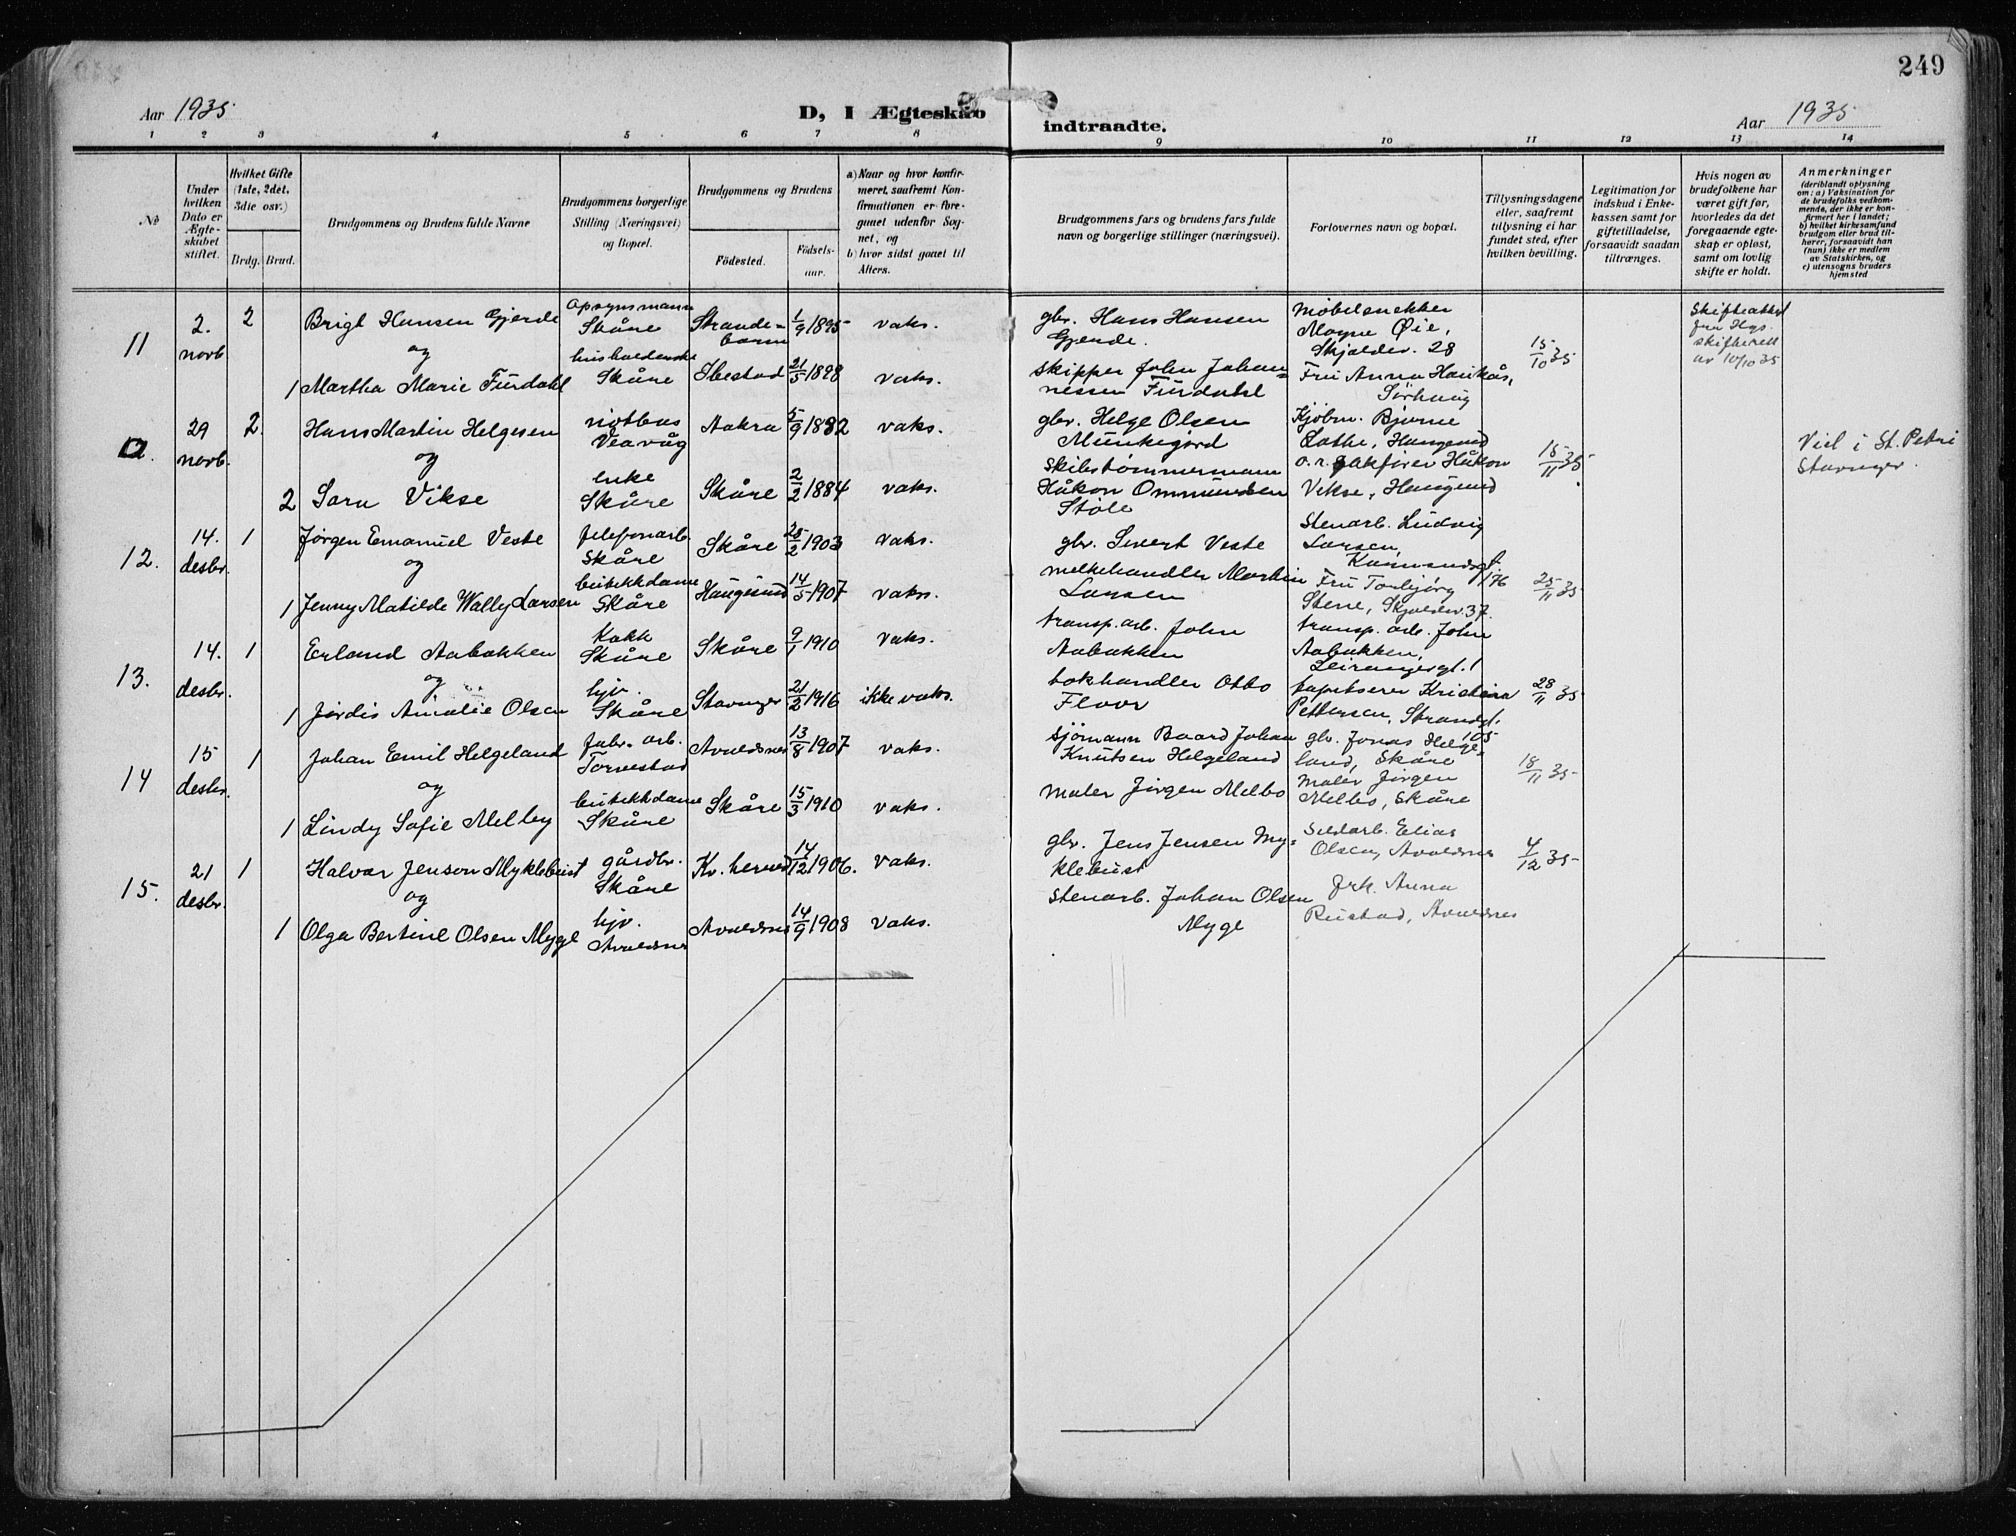 249
Aar 1935
D, I Ægteskab
indtraadte.
Aar 1935
1 2 3 4 5 6 7 8 9 10 11 12 13 14
No
Under hvilken Dato er Ægteskabet stiftet.
Hvilket Gifte (1ste, 2det, 3die osv.)
Brdg. Brud.
Brudgommens og Brudens fulde Navne
Brudgommens borgerlige Stilling (Næringsvei) og Bopæl.
Brudgommens og Brudens
Födested.
Födselsaar.
a) Naar og hvor konfirmeret, saafremt Konfirmationen er foregaaet udenfor Sognet, og
b) hvor sidst gaaet til Alters.
Brudgommens fars og brudens fars fulde navn og borgerlige stillinger (næringsvei).
Forlovernes navn og bopæl.
Tillysningsdagene eller, saafremt tillysning ei har fundet sted, efter hvilken bevilling.
Legitimation for indskud i Enkekassen samt for giftetilladelse, forsaavidt saadan tiltrænges.
Hvis nogen av brudefolkene har været gift før, hvorledes da det foregaaende egteskap er opløst, samt om lovlig skifte er holdt.
Anmerkninger
(deriblandt oplysning om: a) Vaksination for de brudefolks vedkommende, der ikke er konfirmert her i landet; b) hvilket kirkesamfund brudgom eller brud tilhører, forsaavidt han (hun) ikke er medlem av Statskirken, og c) utensogns bruders hjemsted
11 2. novb. 2 Brigt Hansen Gjerde opsynsmann Skåre Strandebarm 1/9 1895 vaks. gbr. Hans Hansen Gjerde. Möbelsnekker Mogne Øie, Skjoldev. 28 15/10 35 Skifteattest fra Hgs. skifterett av 10/10 35
og
1 Martha Marie Furdahl husholderske Skåre Ibestad 21/5 1898 vaks. skipper John Johannessen Furdahl Fru Anna Haukås, Sørhaug
a. 29 novb. 2. Hans Martin Helgesen notbas Veavåg Aakra 5/9 1882 vaks. gbr. Helge Olsen Munkejord Kjøbm. Bjarne Lothe, Haugesund 15/11 35 Viel i St. Petri Stavanger.
og
2 Sara Vikse enke Skåre Skåre 2/2 1884 vaks. Skibstømmermann Håkon Ommundsen Støle o.r.sakfører Håkon Vikse, Haugesund
12. 14. desbr. 1 Jørgen Emanuel Veste telefonarb. Skåre Skåre 25/2 1903 vaks. gbr. Sivert Veste Stenarb. Ludvig Larsen, Karmsundsgt. 176 25/11 35
og
1 Jenny Matilde Wally Larsen butikkdame Skåre Haugesund 14/5 1907 vaks. melkehandler Martin Larsen Fru Torbjørg Stene, Skjoldev. 37.
13. 14. desbr. 1 Erland Aabakken Kokk Skåre Skåre 9/1 1910 vaks. transp. arb. John Aabakken transp. arb. John Aabakken, Leirangergt. 1 28/11 35
og
1 Jördis Amalie Olsen hjv. Skåre Stavanger 21/2 1916 ikke vaks. bokhandler Otto Floor tapetserer Kristian Pettersen, Strandgt. 105
14 15 desbr. 1 Johan Emil Helgeland fabr. arb. Torvestad Avaldsnes 13/8 1907 vaks. sjömann Baard Johan Knutsen Helgeland gbr. Jonas Helgeland, Skåre 18/11 35
og
1 Lindy Sofie Melby butikkdame Skåre Skåre 15/3 1910 vaks. maler Jörgen Melbo maler Jörgen Melbo, Skåre
15. 21 desbr. 1 Halvar Jenson Myklebust gårdbr. Skåre Kv. herred 14/12 1906. vaks. gbr. Jens Jensen Myklebust Sildarb. Elias Olsen, Avaldsnes 4/12 35
og
1 Olga Bertine Olsen Myge hjv. Avaldsnes Avaldsnes 14/9 1908 vaks. Stenarb. Johan Olsen Myge Frk. Anna Rustad, Avaldsnes